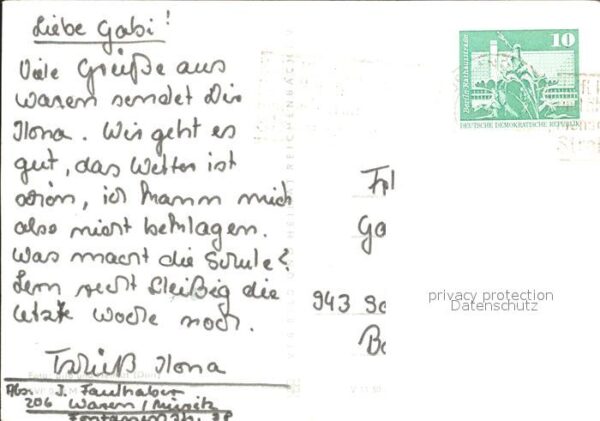 Liebe Gabi!
Viele Grüße aus
Waren sendet Dir
Ilona. Wir geht es
gut, das Wetter ist
schön, ich kann mich
also nicht beklagen.
Was macht die Schule?
Lern recht fleißig die
letzte Woche noch.
Tschüß Ilona
Abs. I. Faulhaber
206 Waren/Müritz
Fontanestr.
10
Berlin, Rathausstraße
DEUTSCHE DEMOKRATISCHE REPUBLIK
Frl
Ga
943 Sc
privacy protection
Datenschutz